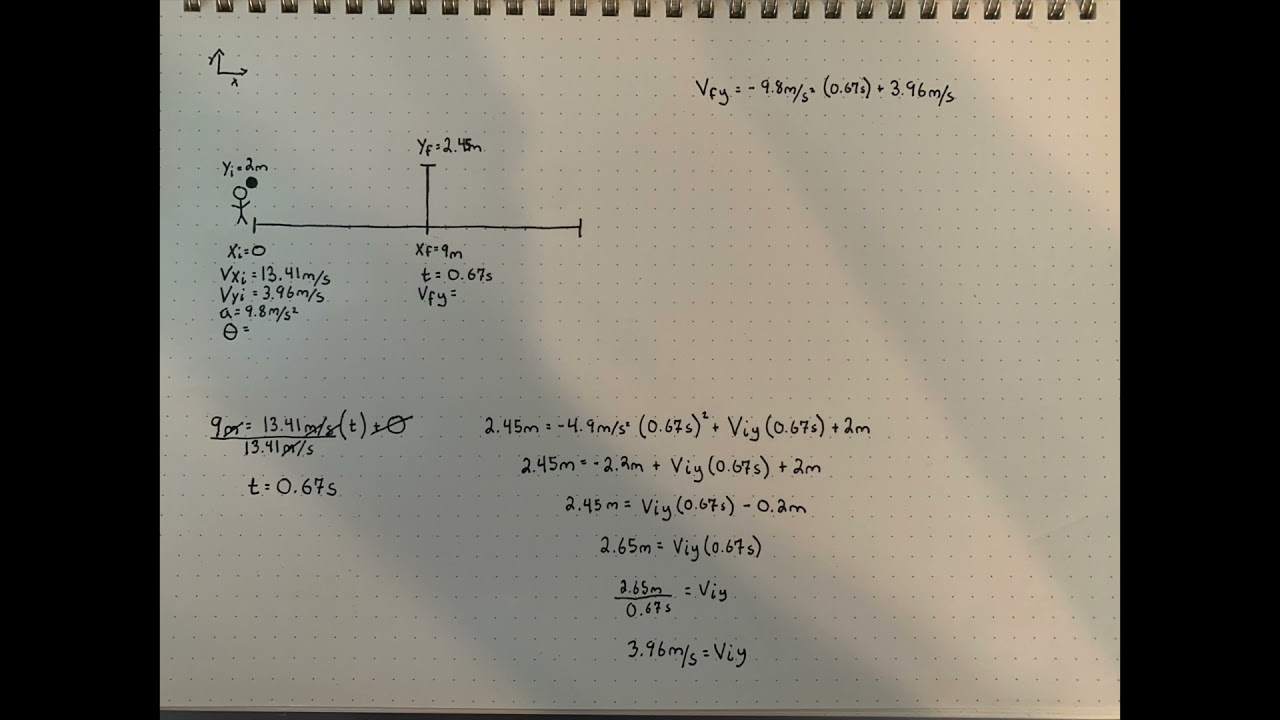 y
x
Vfy = - 9.8m/s² (0.67s) + 3.96m/s
Yf = 2.45m
Yi = 2m
Xi = 0
Vxi = 13.41m/s
Vyi = 3.96m/s
a = 9.8m/s²
θ =
Xf = 9m
t = 0.67s
Vfy =
9m = 13.41m/s (t) + 0
13.41m/s
t = 0.67s
2.45m = -4.9m/s² (0.67s)² + Viy (0.67s) + 2m
2.45m = -2.2m + Viy (0.67s) + 2m
2.45m = Viy (0.67s) - 0.2m
2.65m = Viy (0.67s)
2.65m = Viy
0.67s
3.96m/s = Viy